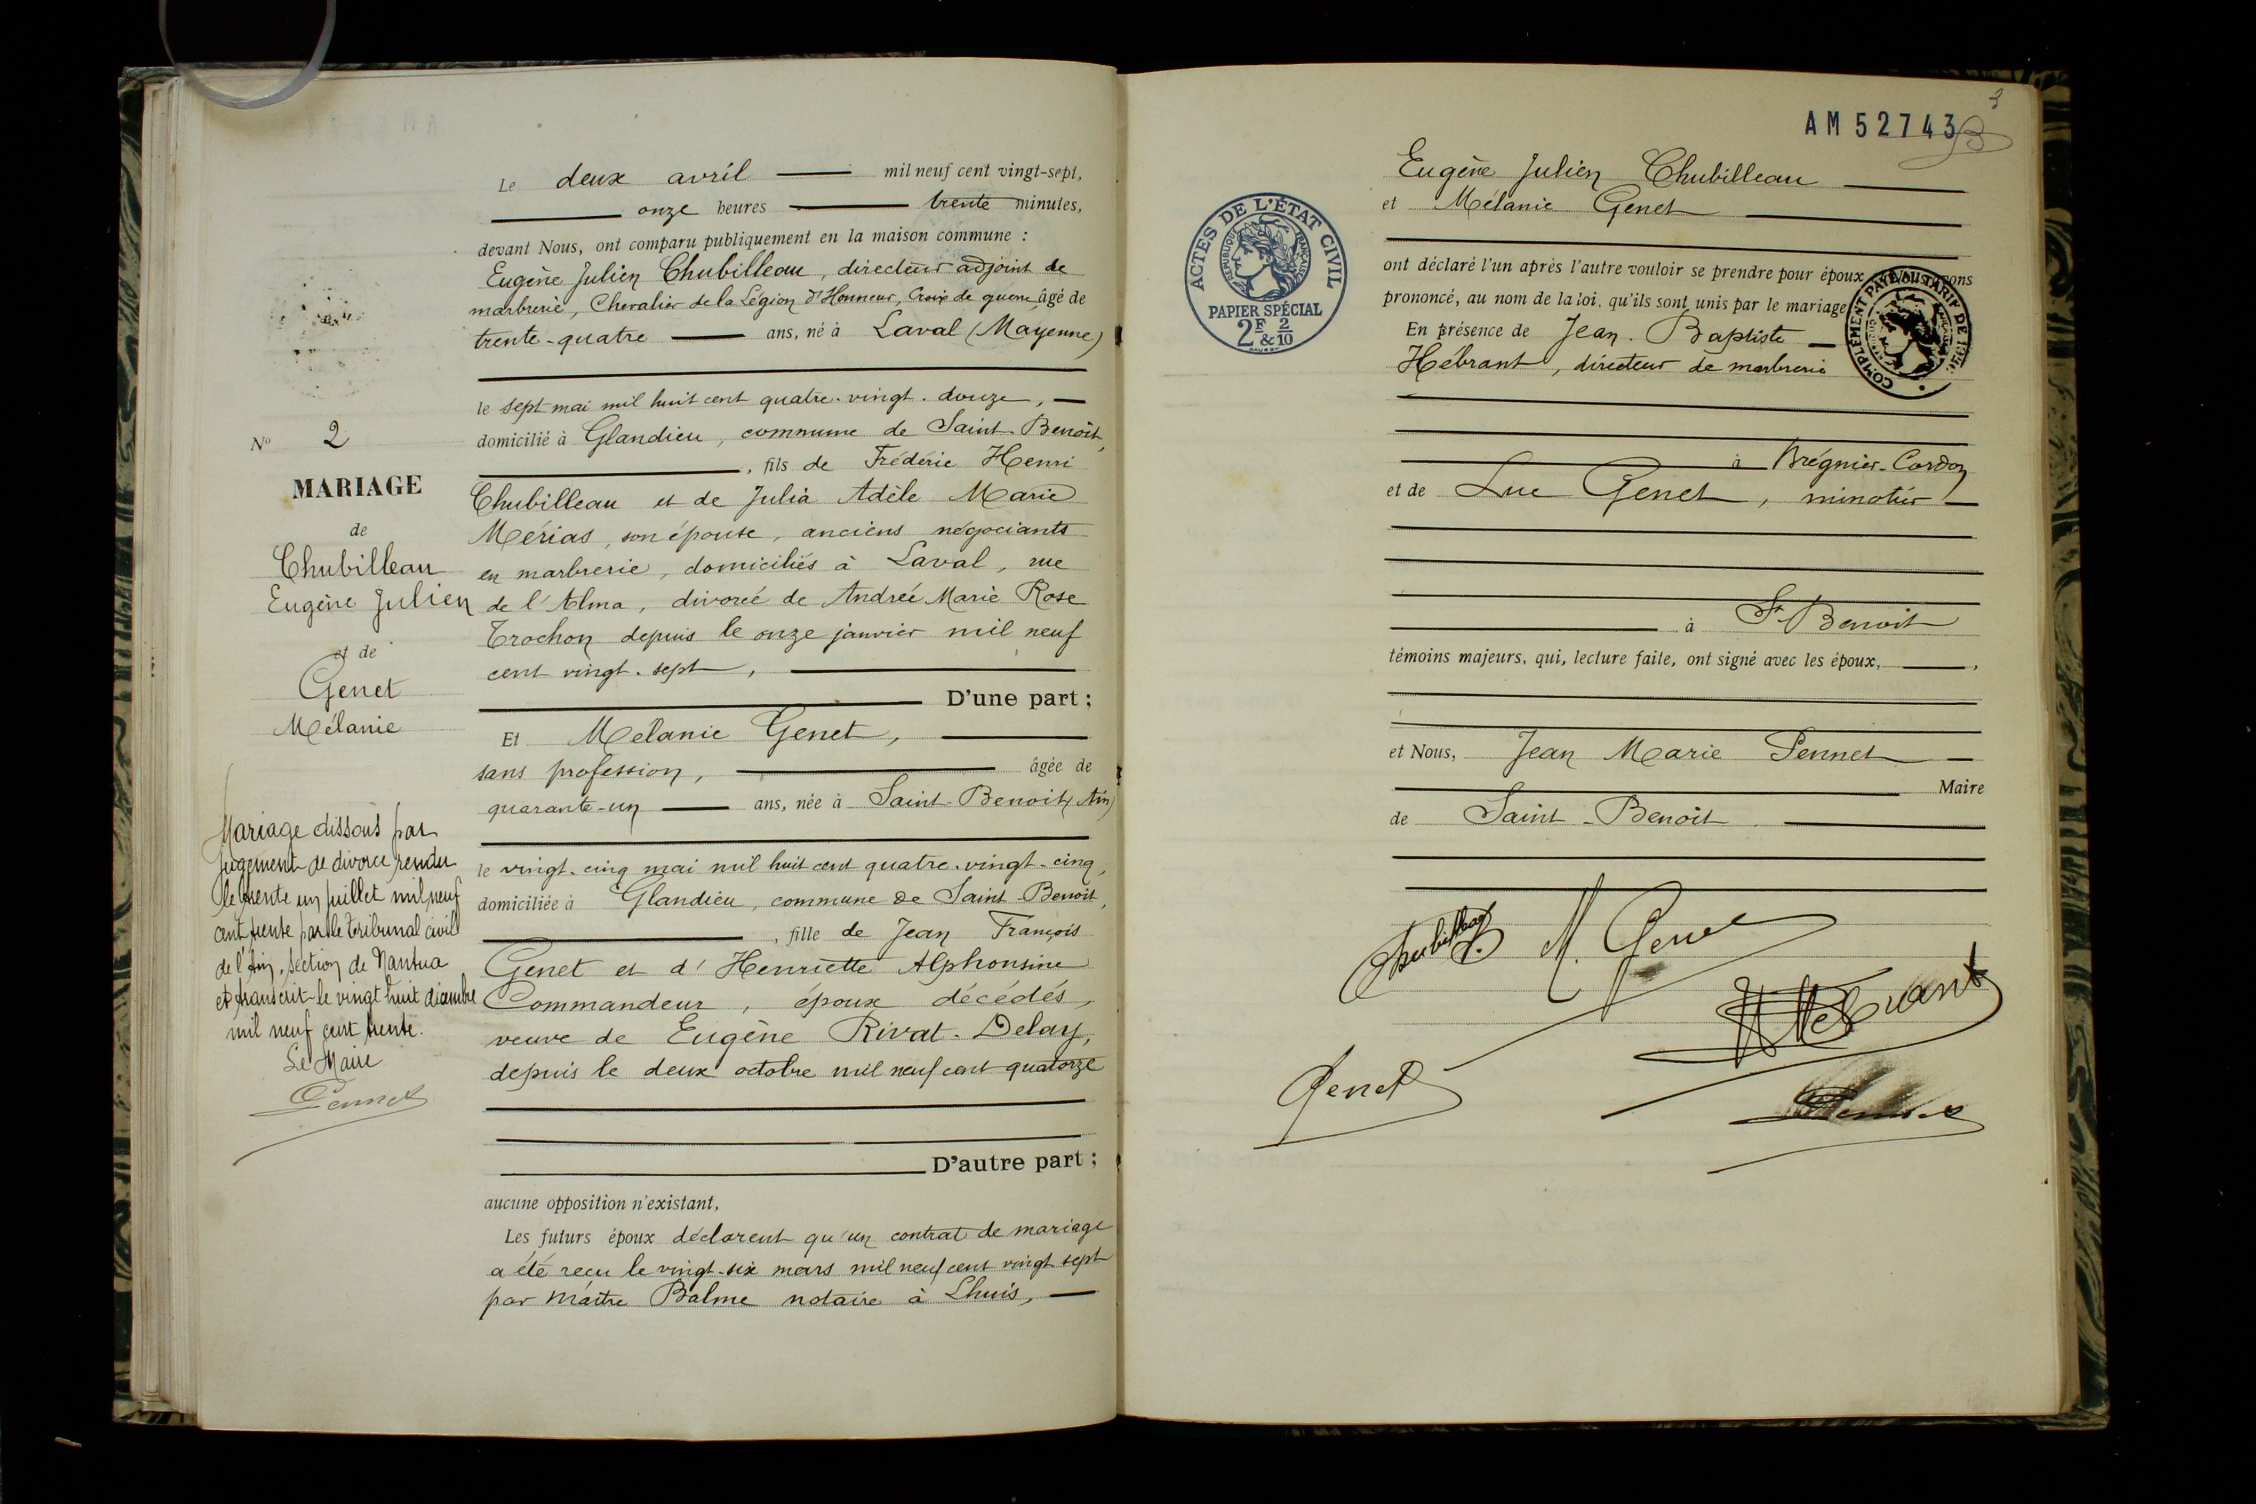 Le deux avril mil neuf cent vingt-sept,
onze heures trente minutes,
devant Nous, ont comparu publiquement en la maison commune :
Eugène Julien Chubilleau, directeur adjoint de
marbrerie, Chevalier de la Légion d'Honneur, Croix de guerre, âgé de
trente-quatre ans, né à Laval (Mayenne)
le sept mai mil huit cent quatre-vingt-douze,
domicilié à Glandieu, commune de Saint-Benoit,
, fils de Frédéric Henri
Chubilleau et de Julia Adèle Marie
Mérias, son épouse, anciens négociants
en marbrerie, domiciliés à Laval, rue
de l'Alma, divorcé de Andrée Marie Rose
Trochon depuis le onze janvier mil neuf
cent vingt-sept,
D'une part ;
Et Mélanie Genet,
sans profession, âgée de
quarante-un ans, née à Saint-Benoit (Ain)
le vingt-cinq mai mil huit cent quatre-vingt-cinq,
domiciliée à Glandieu, commune de Saint-Benoit,
, fille de Jean François
Genet et d'Henriette Alphonsine
Commandeur, époux décédés,
veuve de Eugène Rivat-Delay,
depuis le deux octobre mil neuf cent quatorze
D'autre part ;
aucune opposition n'existant,
Les futurs époux déclarent qu'un contrat de mariage
a été reçu le vingt-six mars mil neuf cent vingt sept
par Maître Balme notaire à Lhuis,
No 2
MARIAGE
de
Chubilleau
Eugène Julien
et de
Genet
Mélanie
Mariage dissous par
jugement de divorce rendu
le trente un juillet mil neuf
cent trente par le Tribunal civil
de l'Ain, section de Nantua
et transcrit le vingt huit décembre
mil neuf cent trente.
Le Maire
Pennet
3
AM 52743
ACTES DE L'ÉTAT CIVIL
RÉPUBLIQUE FRANÇAISE
PAPIER SPÉCIAL
2F & 2/10
Eugène Julien Chubilleau
et Mélanie Genet
ont déclaré l'un après l'autre vouloir se prendre pour époux et Nous avons
prononcé, au nom de la loi, qu'ils sont unis par le mariage
COMPLÉMENT PAYÉ TARIF DE
En présence de Jean-Baptiste
Hébrant, directeur de marbrerie
à Brégnier-Cordon
et de Luc Genet, minotier
à St Benoit
témoins majeurs, qui, lecture faite, ont signé avec les époux,
et Nous, Jean Marie Pennet
Maire
de Saint-Benoit
Chubilleau M. Genet
Hébrant
Genet
Pennet